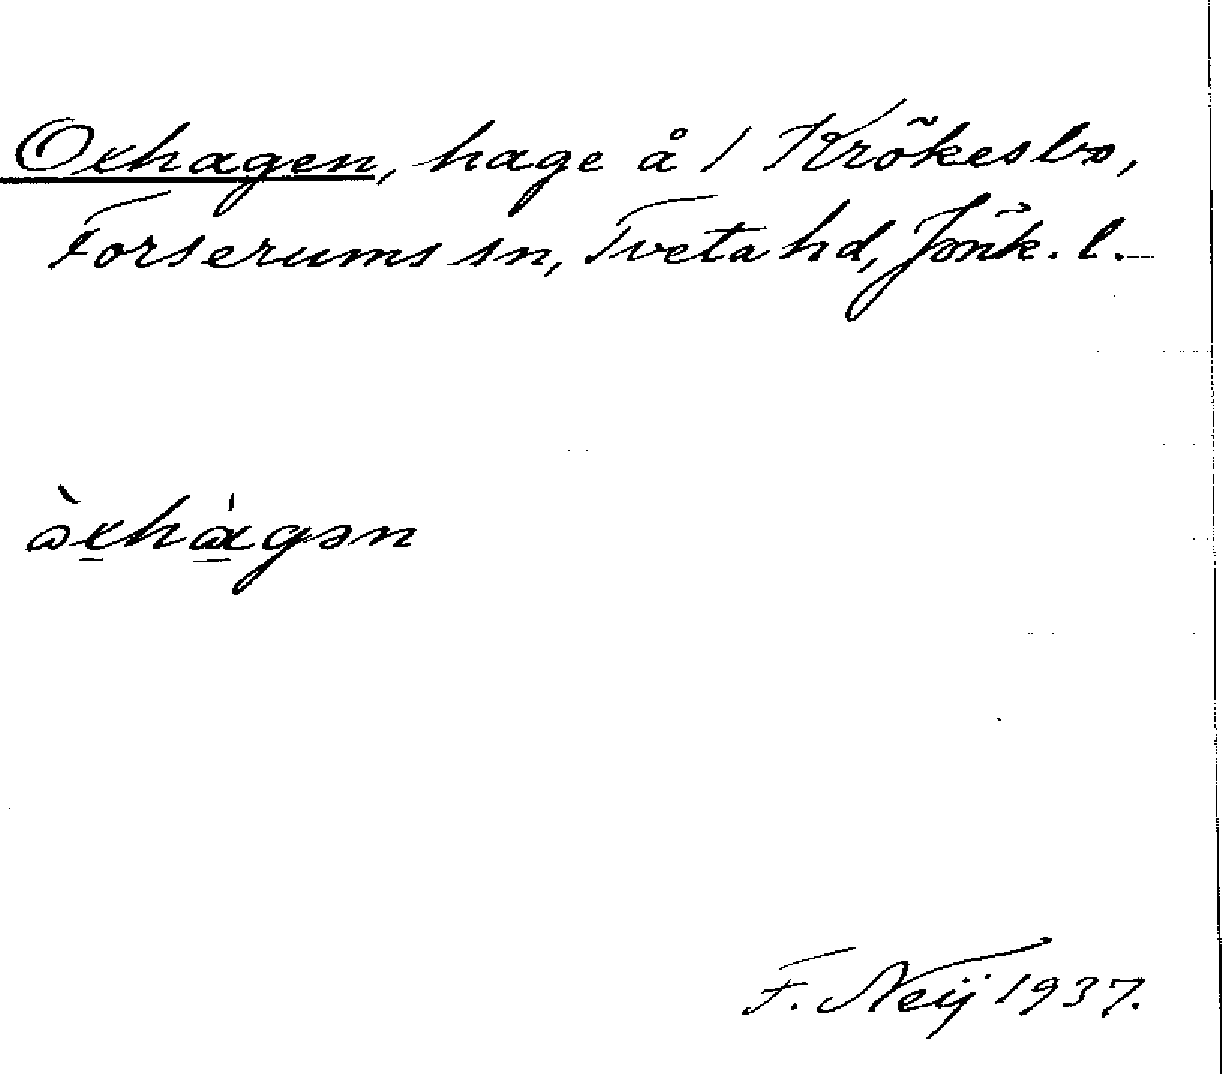 Oxhagen, hage å 1 Krökesbo,
Forserums sn, Tveta hd, Jönk. l.
F. Neij 1937.